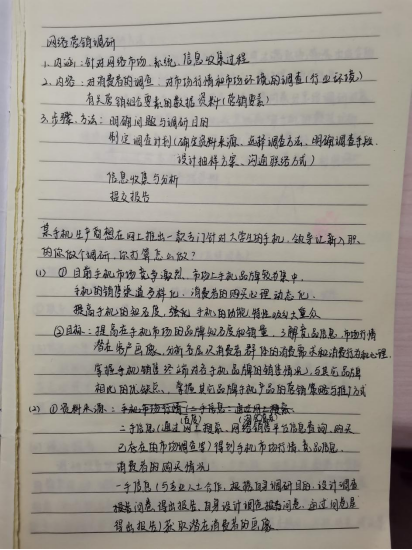 网络营销调研
1.内涵：针对网络市场，系统、信息收集过程
2.内容：对消费者的调查，对市场行情和市场环境的调查（行业环境）
有关营销组合要素的数据资料（营销要素）
3.步骤、方法：明确问题与调研目的
制定调查计划（确定资料来源、选择调查方法、明确调查手段、
设计抽样方案、沟通联络方式）
信息收集与分析
提交报告
某手机生产商想在网上推出一款专门针对大学生的手机，领导让新入职
的你做个调研，你打算怎么做？
(1) ①目前手机市场竞争激烈，市场上手机品牌较为集中，
手机的销售渠道多样化，消费者的购买心理动态化，
提高手机的知名度，强化手机的功能特性吸引大众
②目标：提高在手机市场的品牌知名度和销量，了解竞品信息，市场行情
潜在客户画像、分析各层次消费者群体的消费需求和消费行为和心理
掌握手机销售
相比的优缺点、掌握其它品牌手机产品的营销策略与推广方式
(2) ①资料来源：手机市场行情（二手信息：通过网上搜索
二手信息（通过网上搜索、网络销售平台信息查询、购买
已存在的市场调查等）得到手机市场行情、竞品信息、
消费者的购买情况
一手信息（与专业人士合作，根据自身调研目的，设计调查
报告问卷，得出报告，自身设计调查报告问卷，通过问卷星
得出报告）获取潜在消费者的画像